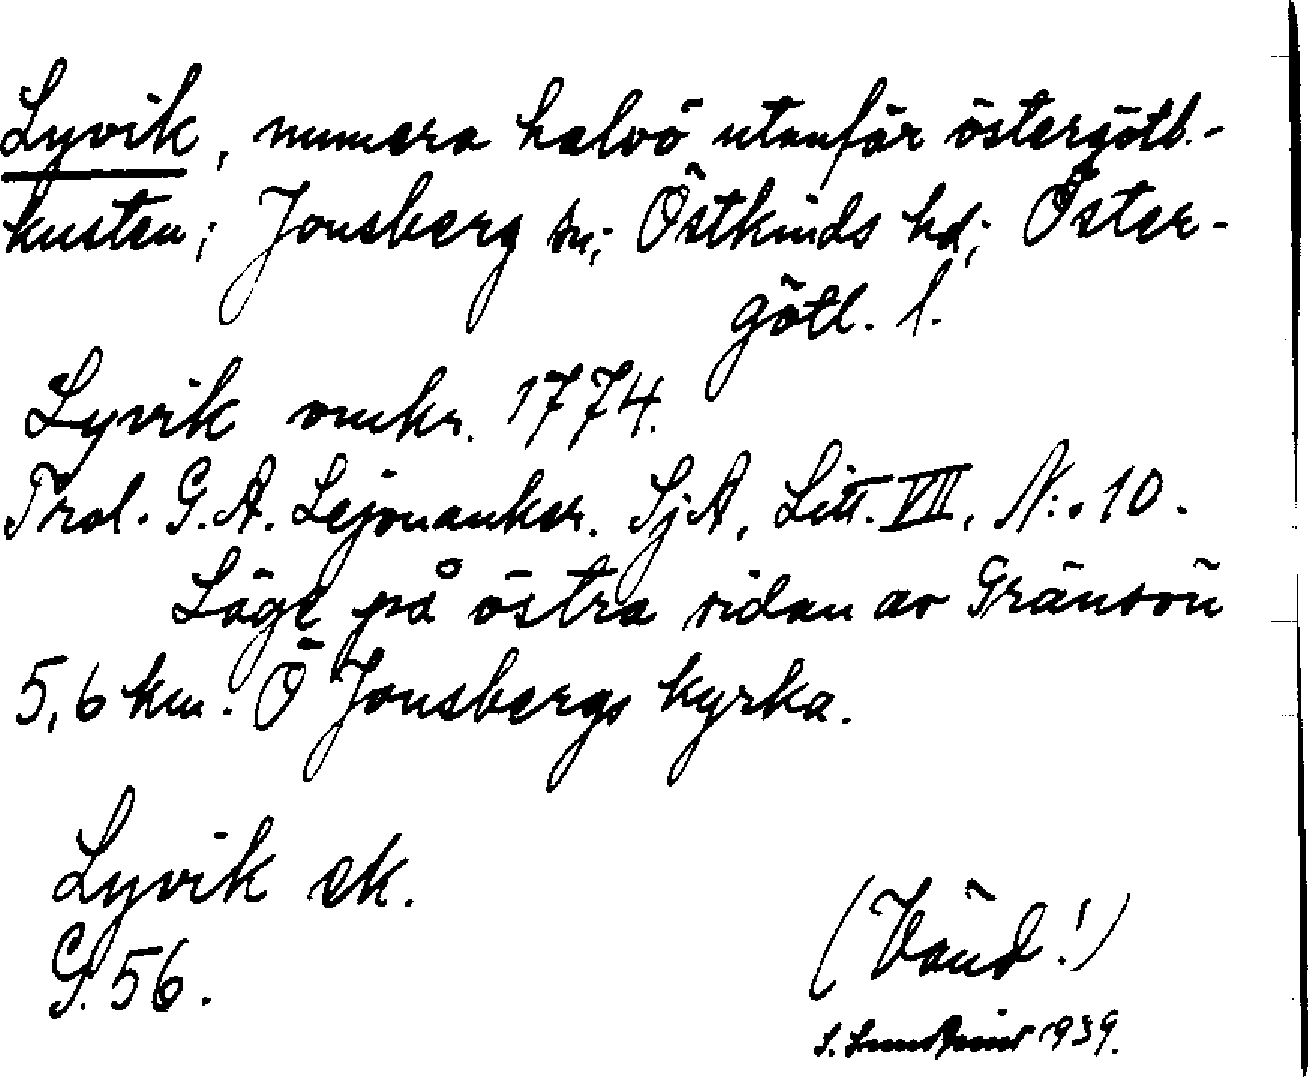 Lyvik, numera halvö utanför östergötl.-
kusten; Jonsberg sn; Östkinds hd; Öster-
götl. l.
Lyvik omkr. 1774.
Trol. G. A. Lejonanker. SjA, Litt. VII, N:. 10.
Läge på östra sidan av Gränsön
5,6 km. Ö Jonsbergs kyrka.
Lyvik ek.
G. 56.
(Vänd!)
S. 1939.